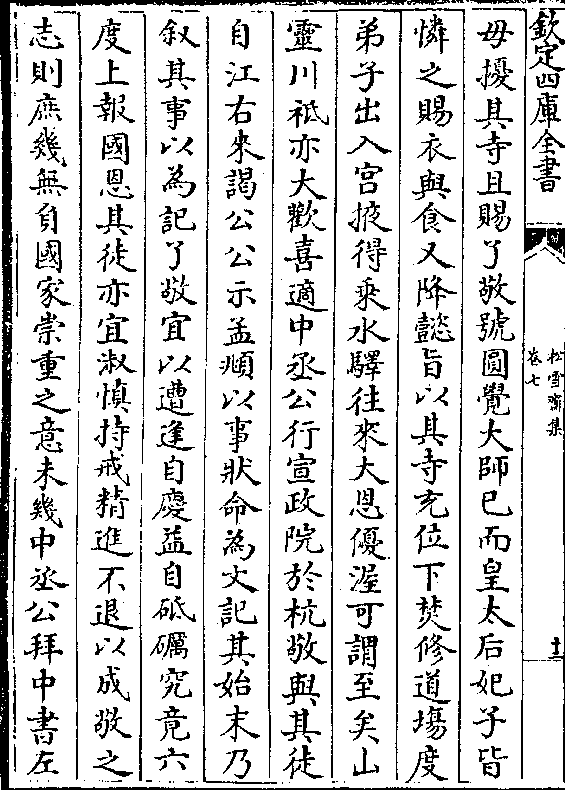 欽定四庫全書
松雪齋集
卷七
十二
毋擾其寺且賜了敬號圓覺大師已而皇太后妃子皆
憐之賜衣與食又降懿旨以其寺充位下焚修道場度
弟子出入宫掖得乘水驛往來大恩優渥可謂至矣山
靈川祗亦大歡喜適中丞公行宣政院於杭敬與其徒
自江右來謁公公示孟頫以事狀命為文記其始末乃
叙其事以為記了敬宜以遭逢自慶益自砥礪究竟六
度上報國恩其徒亦宜淑慎持戒精進不退以成敬之
志則庶幾無負國家崇重之意未幾中丞公拜中書左